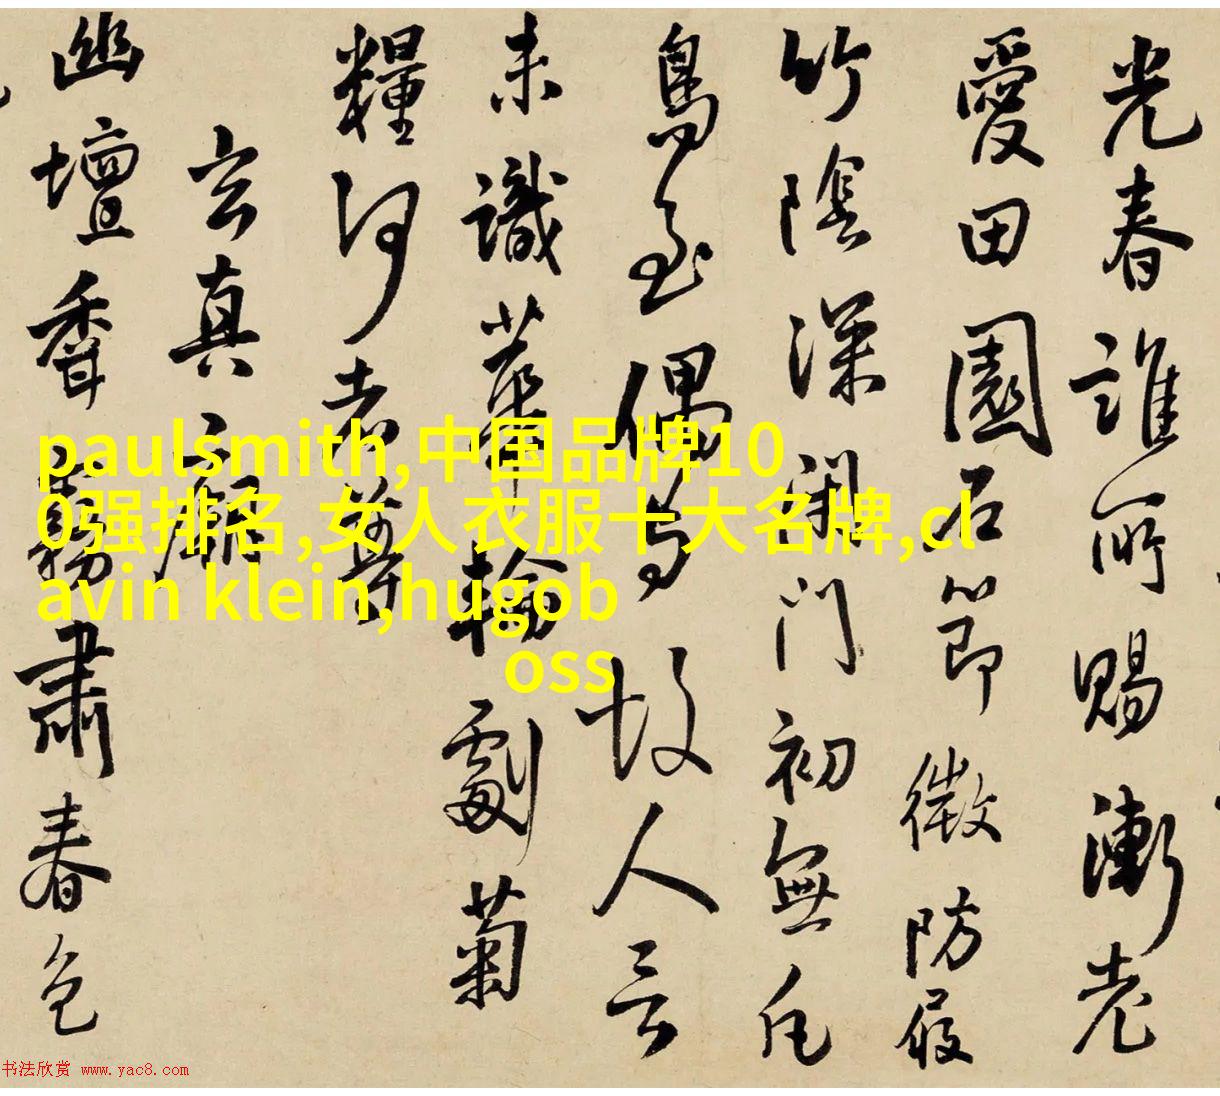 光春誰所賜漸老
愛田園石節微防屐
竹陰深閉門初無凡
鳥至偶與故人言
未識華輪劚菊
糧何者尊
玄真
幽壇香霧肅春色
paulsmith,中国品牌10
0强排名,女人衣服十大名牌,cl
avin klein,hugob
oss
书法欣赏 www.yac8.com